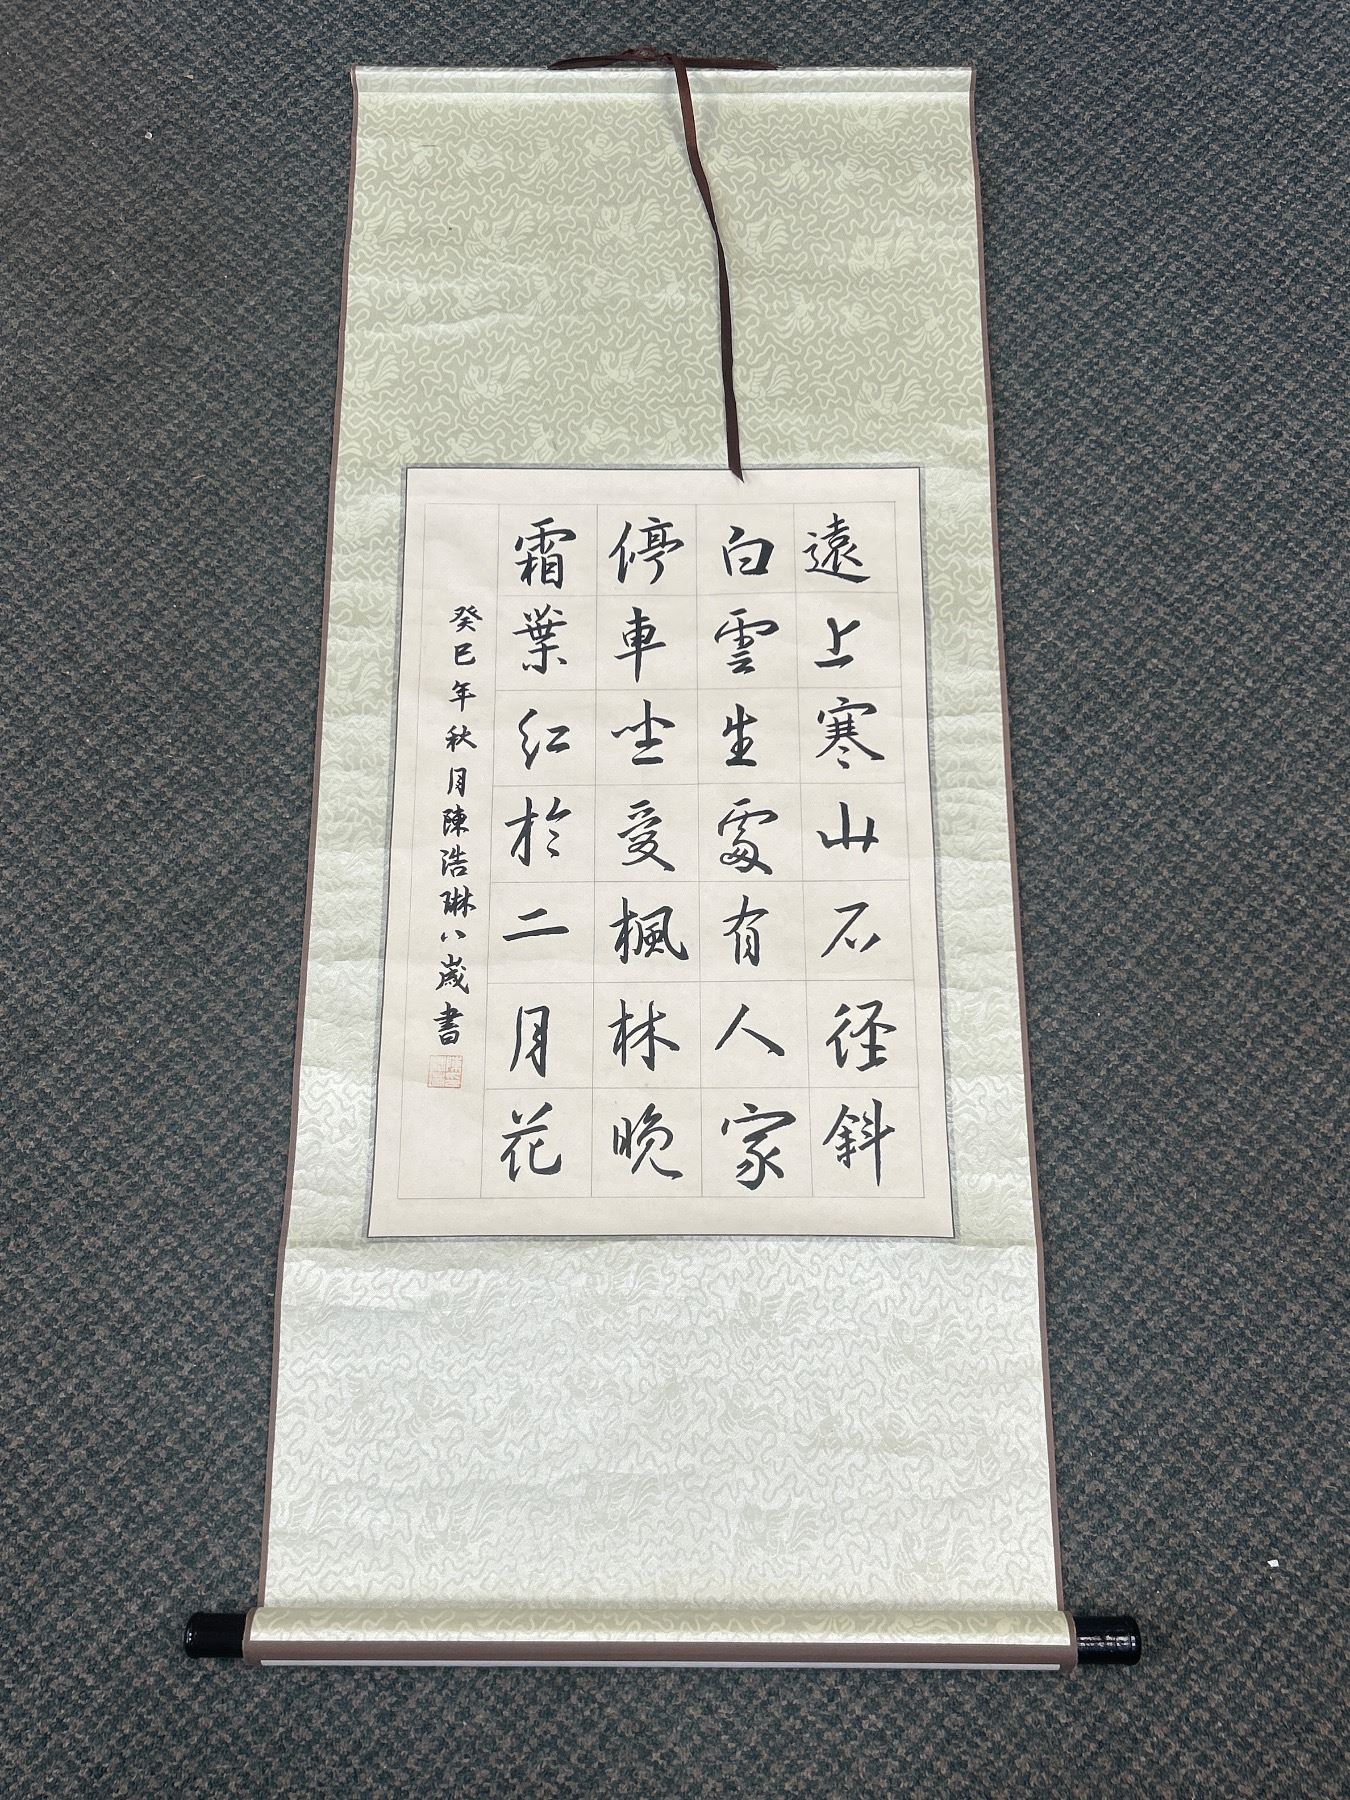 遠上寒山石徑斜
白雲生處有人家
停車坐愛楓林晚
霜葉紅於二月花
癸巳年秋月陳浩琳八歲書